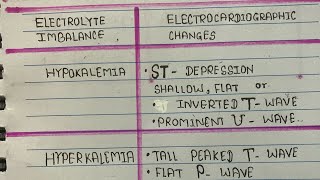 ELECTROLYTE IMBALANCE
ELECTROCARDIOGRAPHIC CHANGES
HYPOKALEMIA
• ST - DEPRESSION
SHALLOW, FLAT or
INVERTED T - WAVE
• PROMINENT U - WAVE..
HYPERKALEMIA
• TALL PEAKED T - WAVE
• FLAT P - WAVE